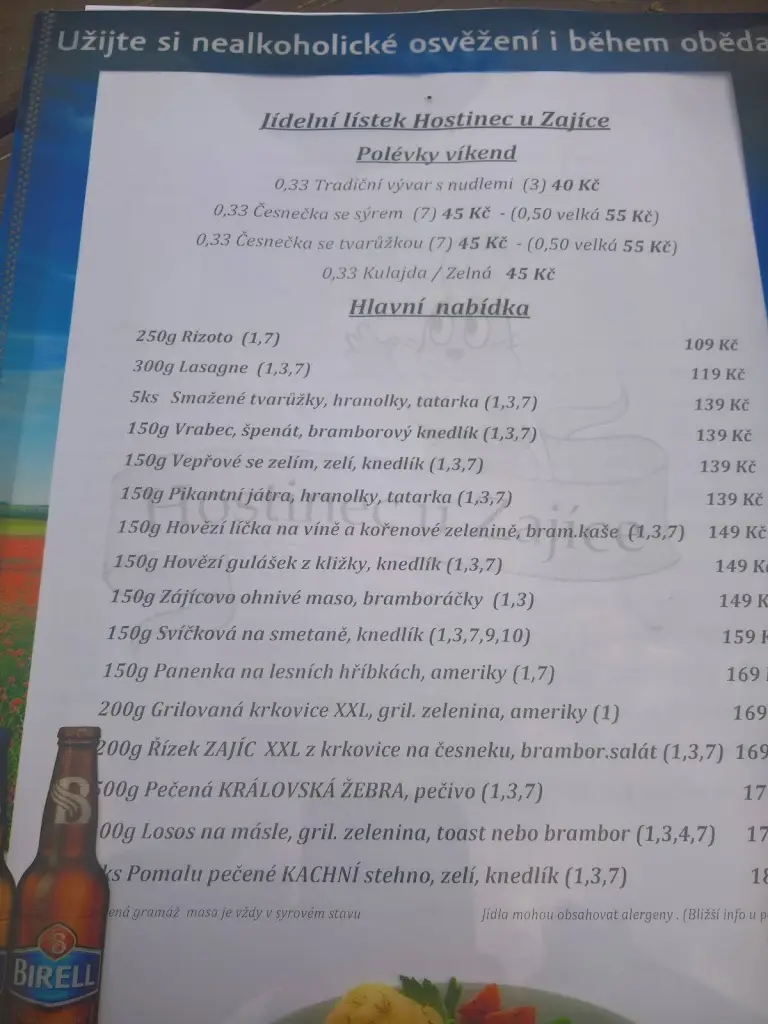 Užijte si nealkoholické osvěžení i během oběda
Jídelní lístek Hostinec u Zajíce
Polévky víkend
0,33 Tradiční vývar s nudlemi (3) 40 Kč
0,33 Česnečka se sýrem (7) 45 Kč - (0,50 velká 55 Kč)
0,33 Česnečka se tvarůžkou (7) 45 Kč - (0,50 velká 55 Kč)
0,33 Kulajda / Zelná 45 Kč
Hlavní nabídka
250g Rizoto (1,7) 109 Kč
300g Lasagne (1,3,7) 119 Kč
5ks Smažené tvarůžky, hranolky, tatarka (1,3,7) 139 Kč
150g Vrabec, špenát, bramborový knedlík (1,3,7) 139 Kč
150g Vepřové se zelím, zelí, knedlík (1,3,7) 139 Kč
150g Pikantní játra, hranolky, tatarka (1,3,7) 139 Kč
Hostinec u Zajíce
150g Hovězí líčka na víně a kořenové zelenině, bram.kaše (1,3,7) 149 Kč
150g Hovězí gulášek z kližky, knedlík (1,3,7) 149 K
150g Zájícovo ohnivé maso, bramboráčky (1,3) 149 K
150g Svíčková na smetaně, knedlík (1,3,7,9,10) 159 K
150g Panenka na lesních hříbkách, ameriky (1,7) 169
200g Grilovaná krkovice XXL, gril. zelenina, ameriky (1) 169
200g Řízek ZAJÍC XXL z krkovice na česneku, brambor.salát (1,3,7) 169
500g Pečená KRÁLOVSKÁ ŽEBRA, pečivo (1,3,7) 17
00g Losos na másle, gril. zelenina, toast nebo brambor (1,3,4,7) 17
ks Pomalu pečené KACHNÍ stehno, zelí, knedlík (1,3,7) 18
ená gramáž masa je vždy v syrovém stavu Jídla mohou obsahovat alergeny . (Bližší info u p
BIRELL